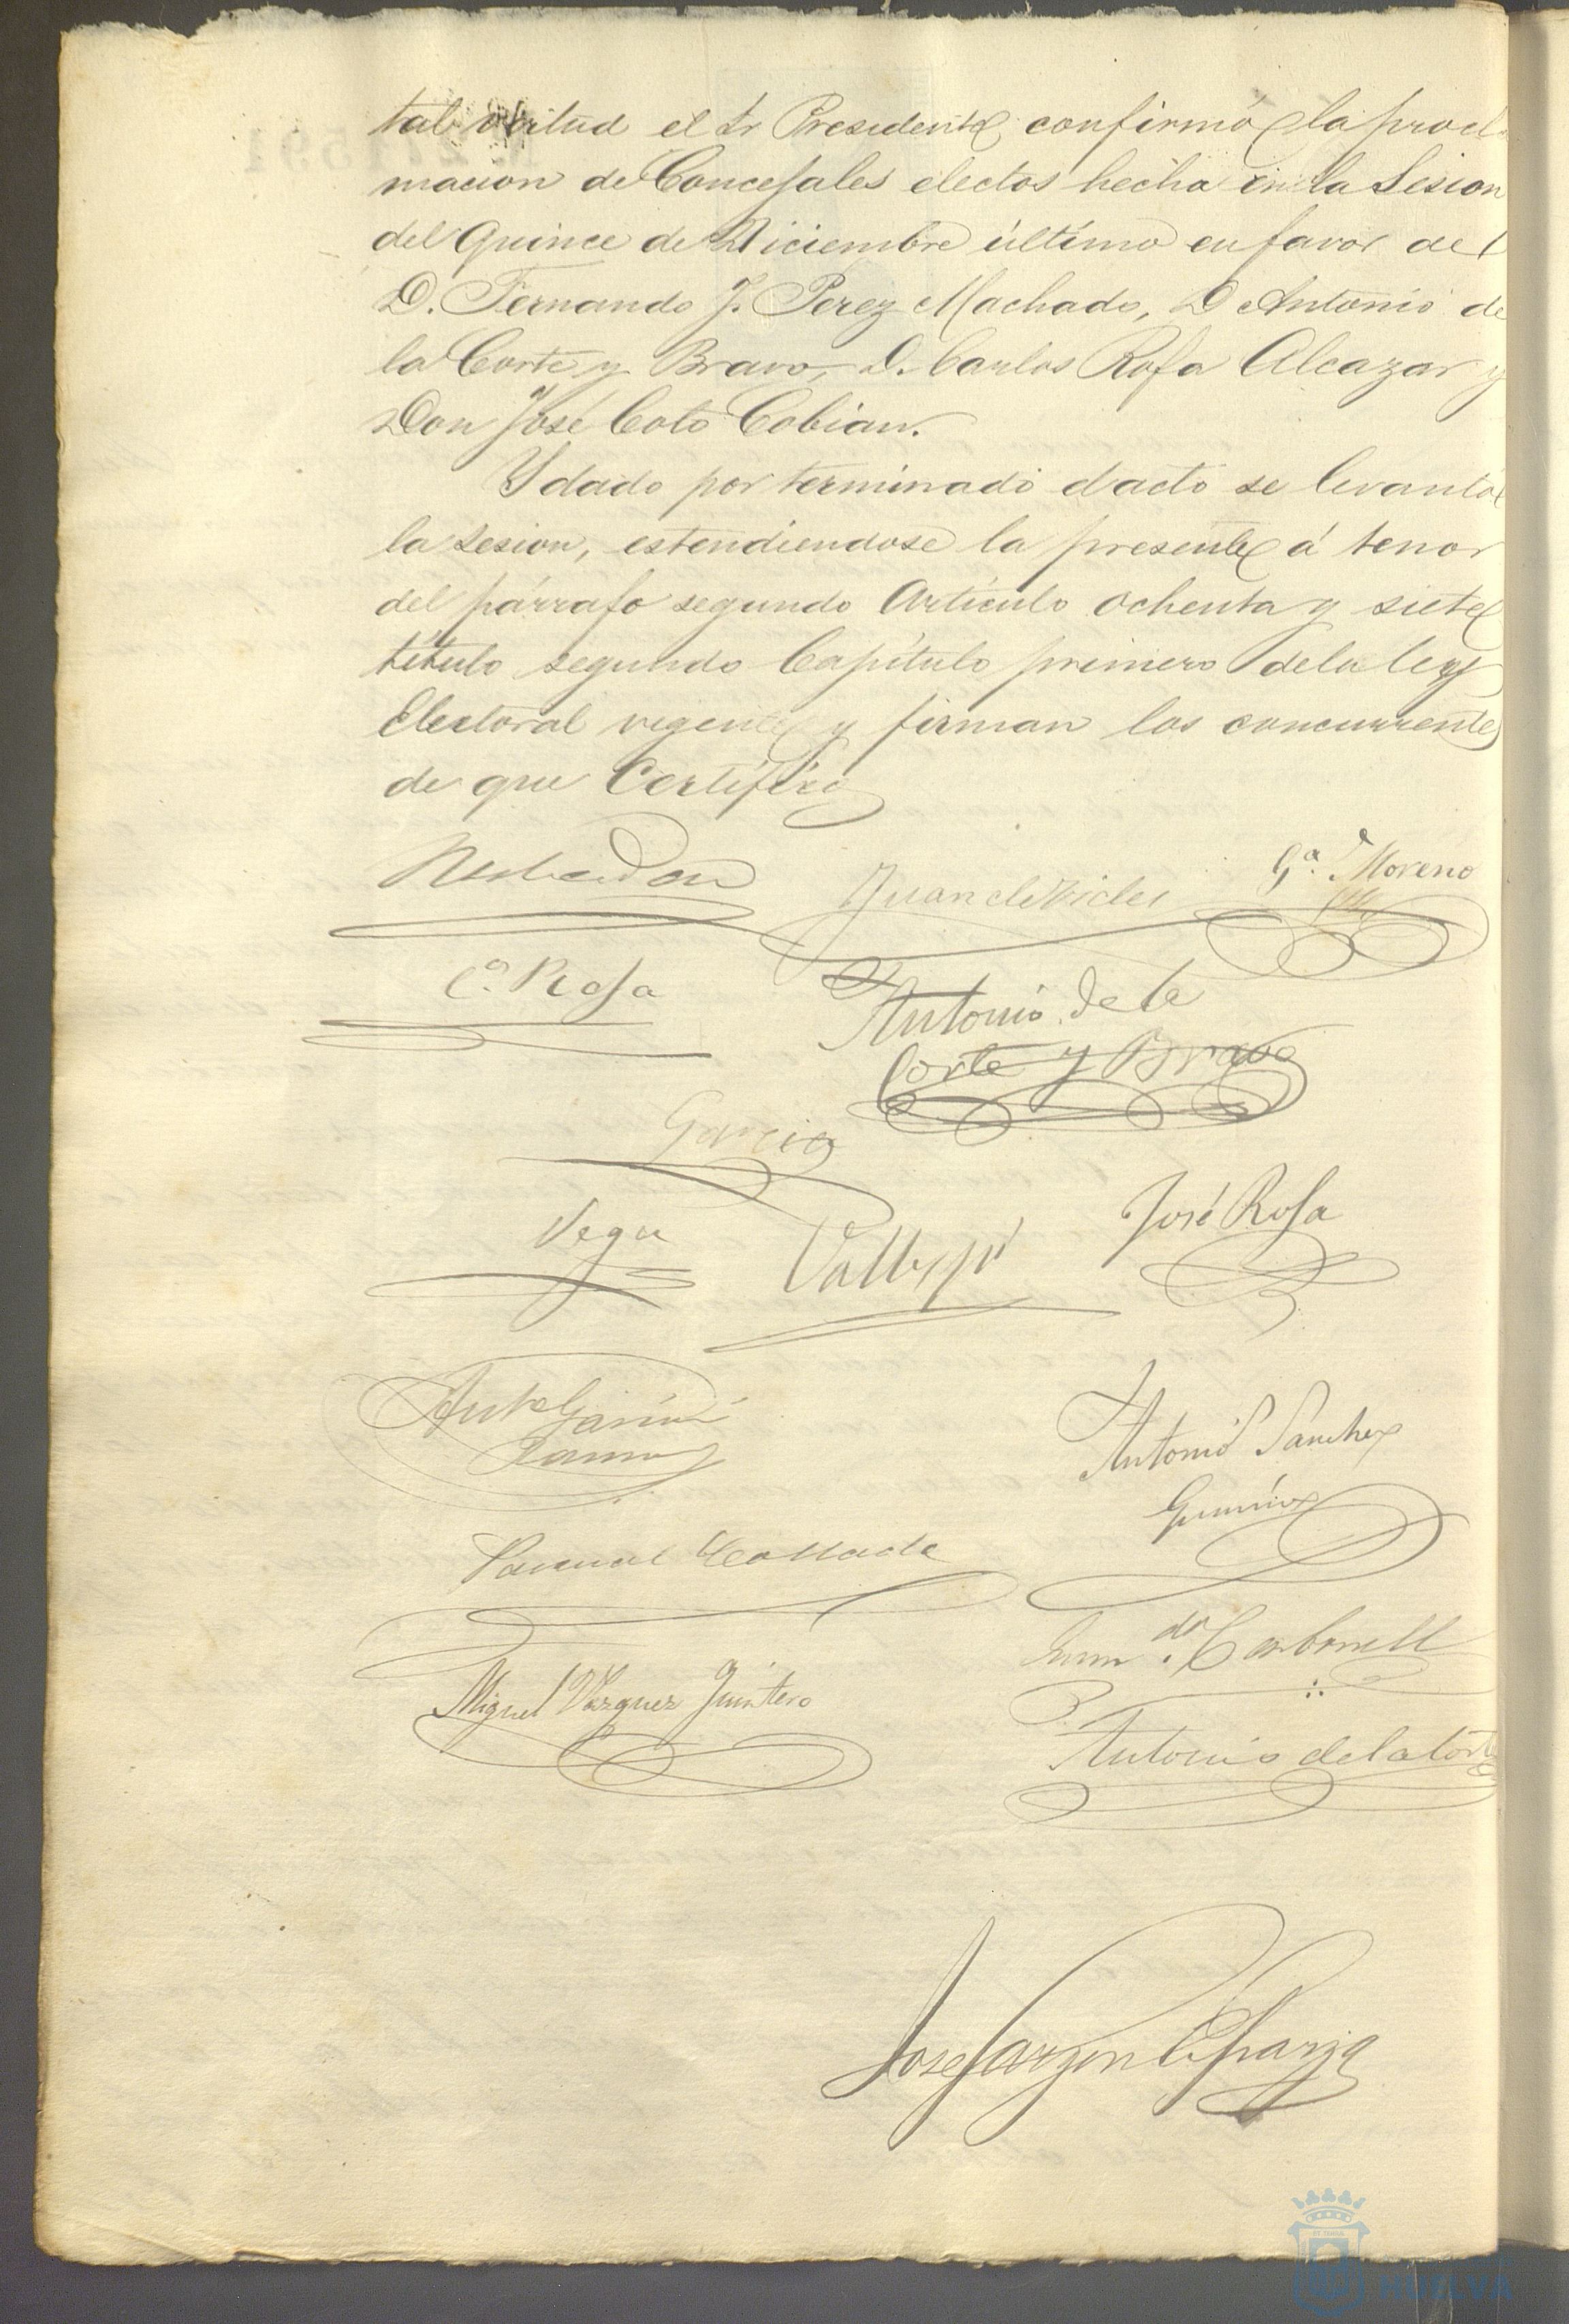 tal virtud el Sr Presidente confirmó la procl
macion de Concejales electos hecha en la Sesion
del Quince de Diciembre último en favor de
D. Fernando J. Perez Machado, D Antonio de
la Corte y Bravo, D. Carlos Rofa Alcazar y
Don José Coto Cobian.
Y dado por terminado el acto se levantó
la sesion, estendiendose la presente á tenor
del párrafo segundo Artículo ochenta y siete
título segundo Capítulo primero de la ley
Electoral vigente y firman los concurrentes
de que Certífico
Juan de
Gª Moreno
Cº Rofa
Antonio de la
Corte y Bravo
Garcia
Vega
Vallejo
José Rofa
Antº Garcia
Ramos
Antonio Sanchez
Pascual Collada
Carbonell
Miguel Vázquez Quintero
Antonio de la Corte
José Garzon
HUELVA